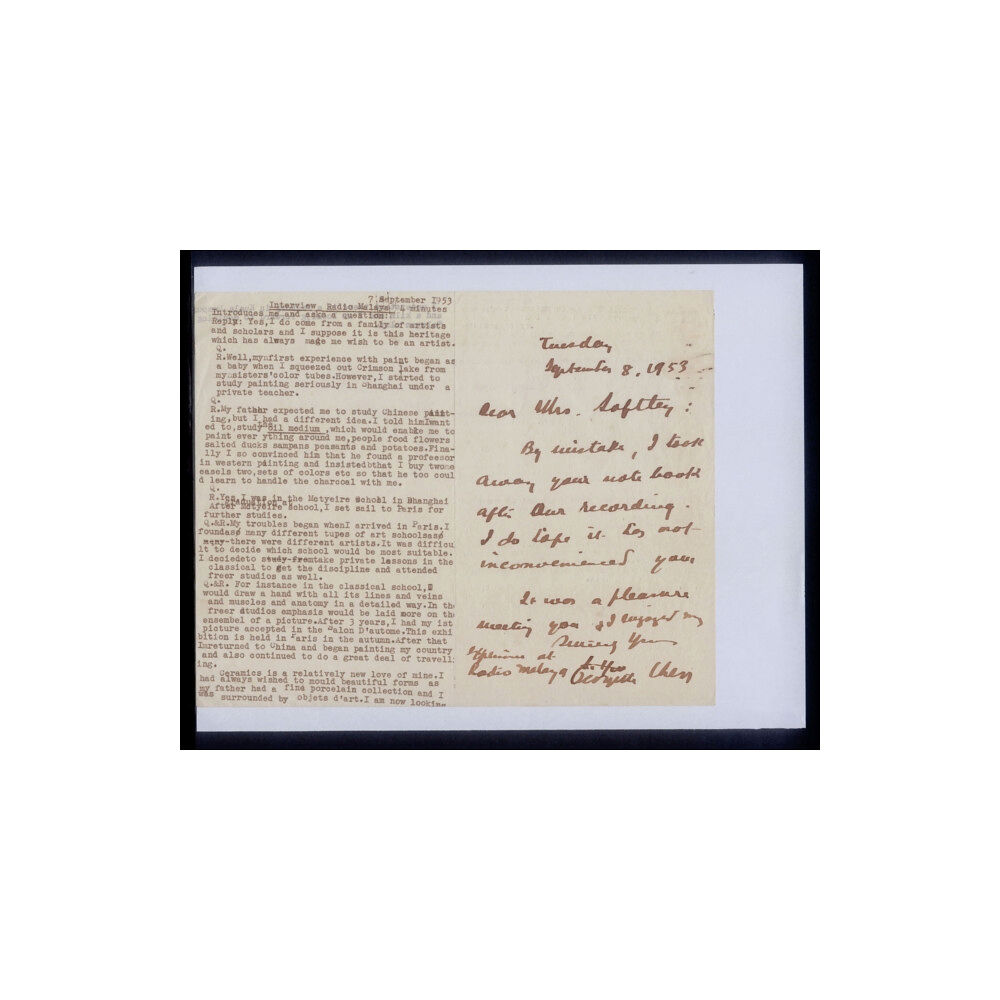 7 September 1953
Interview Radio Malaya 4 minutes
Introduces me and asks a question:
Reply: Yes,I do come from a family of artists
and scholars and I suppose it is this heritage
which has always made me wish to be an artist.
Q.
R.Well,my first experience with paint began as
a baby when I squeezed out Crimson Lake from
my sisters'color tubes.However,I started to
study painting seriously in Shanghai under a
private teacher.
Q.
R.My father expected me to study Chinese paint-
ing,but I had a different idea.I told himIwant
ed to,study oil medium ,which would enable me to
paint ever ything around me,people food flowers
salted ducks sampans peasants and potatoes.Fina-
lly I so convinced him that he found a professor
in western painting and insisted that I buy two
easels two,sets of colors etc so that he too coul
d learn to handle the charcoal with me.
Q.
R.Yes,I was in the Mctyeire School in Shanghai
graduation at
After Mctyeire School,I set sail to Paris for
further studies.
Q.&R.My troubles began whenI arrived in Paris.I
found as many different tupes of art schools as
many there were different artists.It was difficu
lt to decide which school would be most suitable.
I deciedeto study from take private lessons in the
classical to get the discipline and attended
freer studios as well.
Q.&R. For instance in the classical school,
would draw a hand with all its lines and veins
and muscles and anatomy in a detailed way.In the
freer studios emphasis would be laid more on the
ensembel of a picture.After 3 years,I had my 1st
picture accepted in the Salon D'autome.This exhi
bition is held in Paris in the autumn.After that
Imreturned to China and began painting my country
and also continued to do a great deal of travell
ing.
Ceramics is a relatively new love of mine.I
had always wished to mould beautiful forms as
my father had a fine porcelain collection and I
was surrounded by objets d'art.I am now looking
Tuesday
September 8, 1953
Dear Mrs. Softley:
By mistake, I took
away your note book
after our recording.
I do hope it has not
inconvenienced you.
It was a pleasure
meeting you & I enjoyed my
experience at
Radio Malaya
Sincerely Yours
Georgette Chen